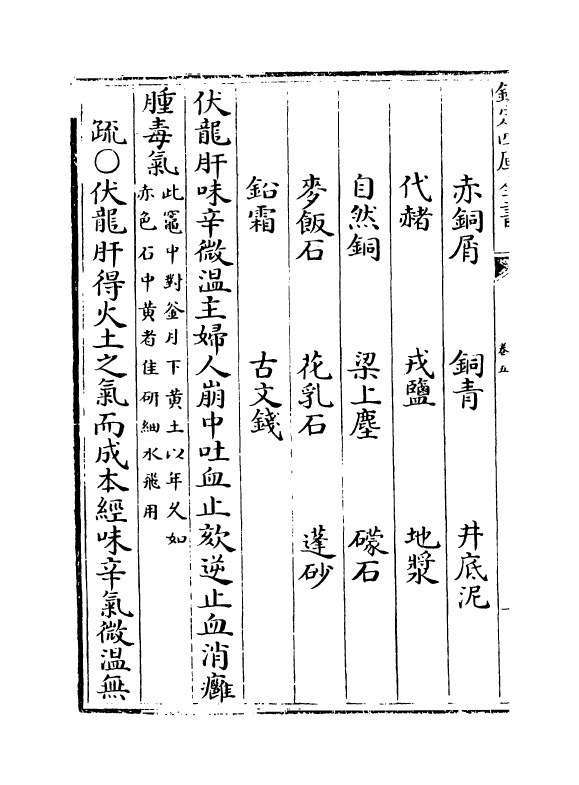 欽定四庫全書
卷五
赤銅屑　銅青　井底泥
代赭　戎鹽　地漿
自然銅　梁上塵　礞石
麥飯石　花乳石　蓬砂
鉛霜　古文錢
伏龍肝味辛微温主婦人崩中吐血止欬逆止血消癰
腫毒氣
此竈中對釜月下黄土以年久如
赤色石中黄者佳研細水飛用
疏〇伏龍肝得火土之氣而成本經味辛氣微温無